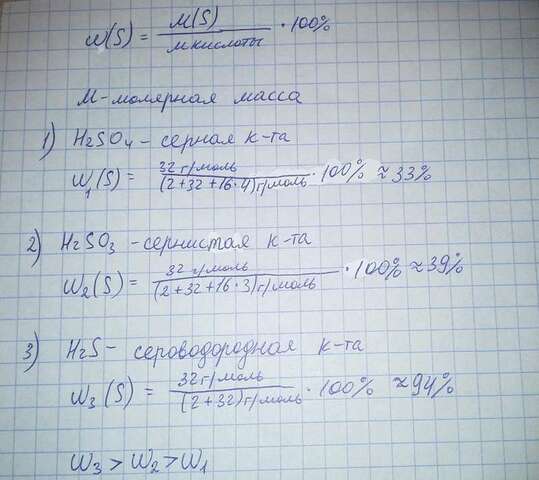 w(S) = M(S) / M кислоты · 100%
M - молярная масса
1) H2SO4 - серная к-та
W1(S) = 32 г/моль / (2+32+16·4) г/моль · 100% ≈ 33%
2) H2SO3 - сернистая к-та
W2(S) = 32 г/моль / (2+32+16·3) г/моль · 100% ≈ 39%
3) H2S - сероводородная к-та
W3(S) = 32 г/моль / (2+32) г/моль · 100% ≈ 94%
W3 > W2 > W1